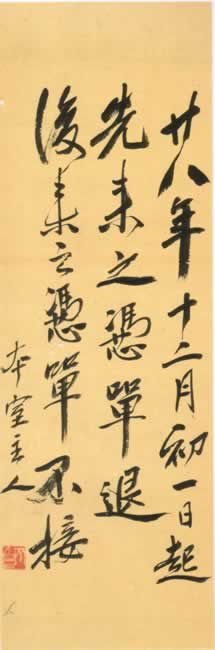 廿八年十二月初一日起
先来之憑單退
後来之憑單不接
本室主人